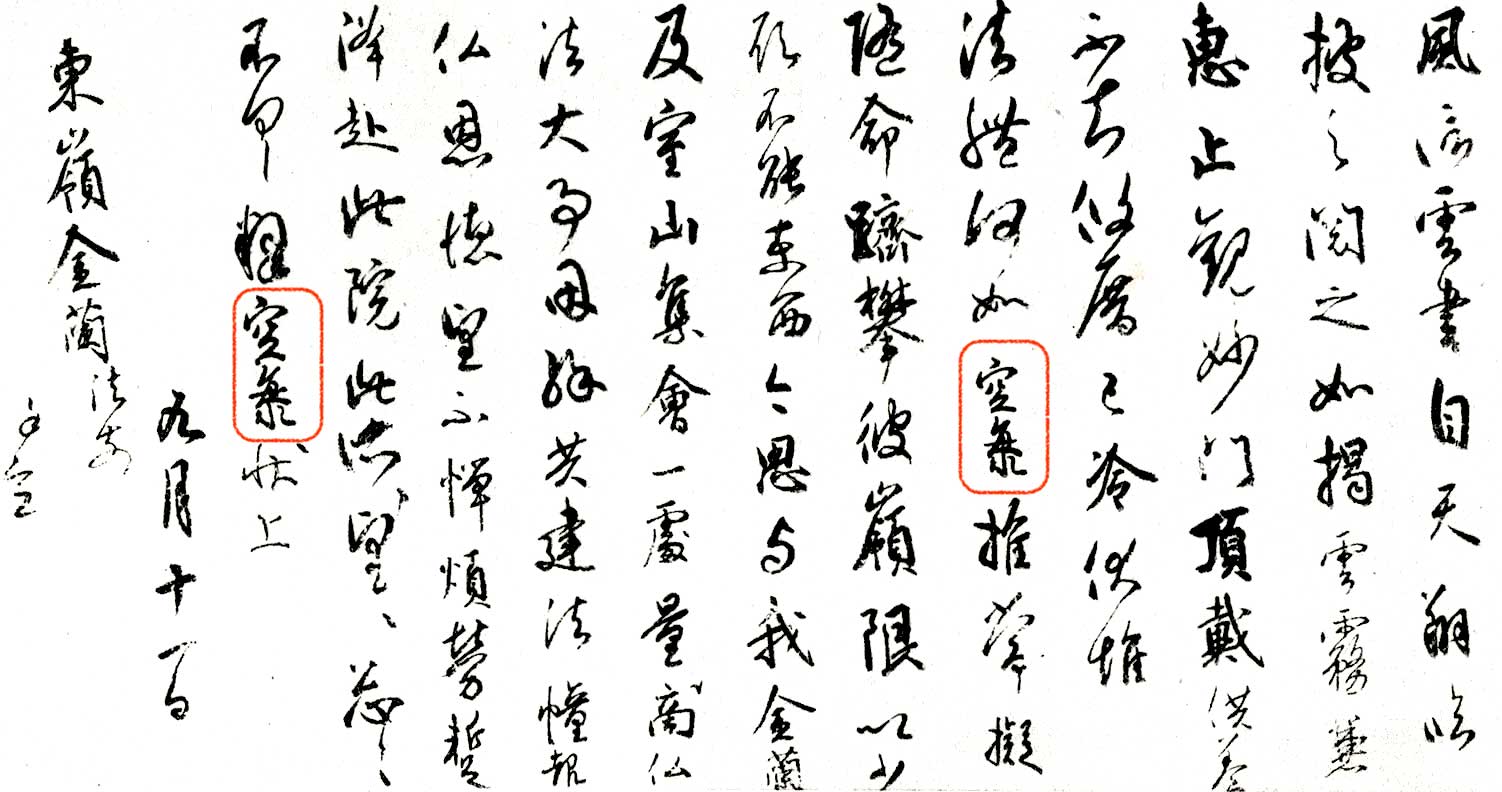 風信雲書自天翔臨
披之閱之如揭雲霧兼
惠止觀妙門頂戴供養
不知攸厝已冷伏惟
法體何如空海推常擬
隨命躋攀彼嶺限以少
願不能東西今思与我金蘭
及室山集會一處量商仏
法大事因緣共建法幢報
仏恩德望不憚煩勞蹔
降赴此院此所々望々忩々
不具釋空海狀上
九月十一日
東嶺金蘭法前
謹空